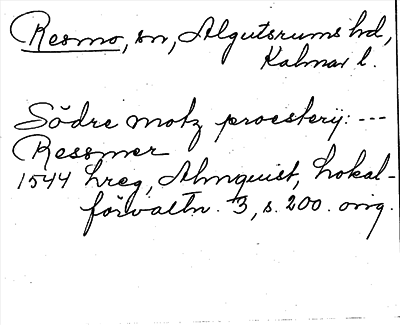 Resmo, sn, Algutsrums hd,
Kalmar l.
Södre motz proestery: ---
Ressmer
1544 hreg, Almquist, Lokal-
förvaltn. 3, s. 200. orig.